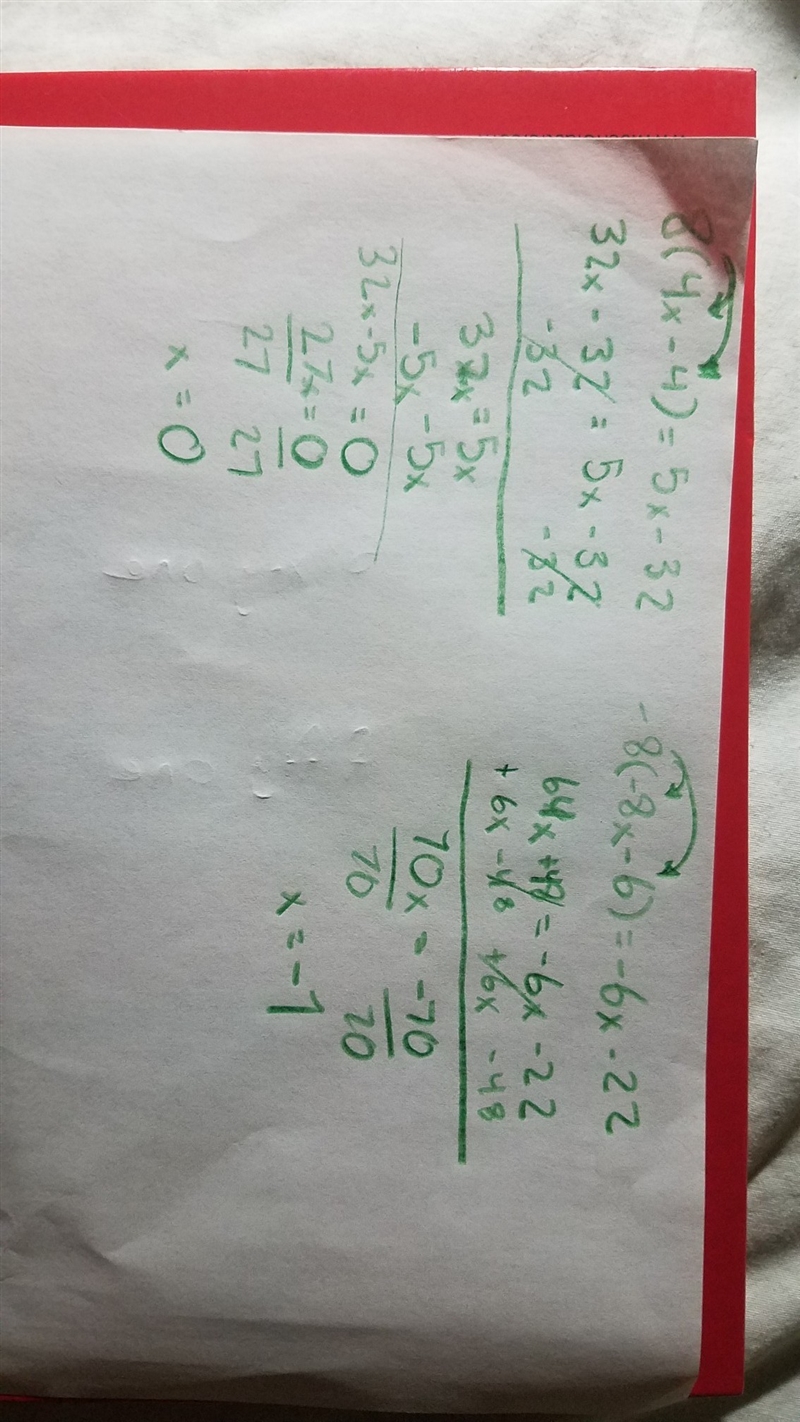 8(4x - 4) = 5x - 32
32x - 32 = 5x - 32
-32 -32
32x = 5x
-5x -5x
32x - 5x = 0
27x = 0
27 27
x = 0
-8(-8x - 6) = -6x - 22
64x + 48 = -6x - 22
+ 6x - 48 + 6x - 48
70x = -70
70 70
x = -1